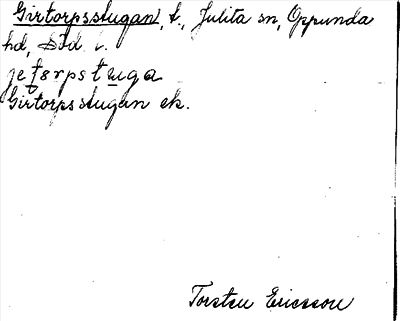 Girtorpsstugan, t., Julita sn, Oppunda
hd, Söd. l.
jeṭɵrpstuga
Girtorpsstugan ek.
Torsten Ericsson